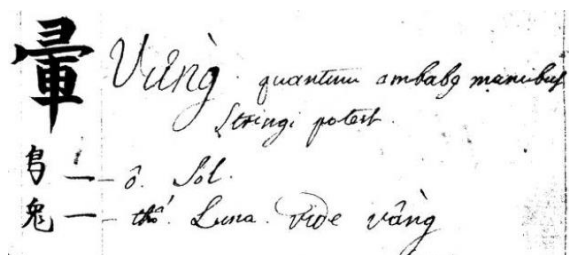 暈 Vừng quantum ambabꝯ manibus
stringi potest.
烏 — ô. Sol.
兔 — thỏ. Luna. vide vâng